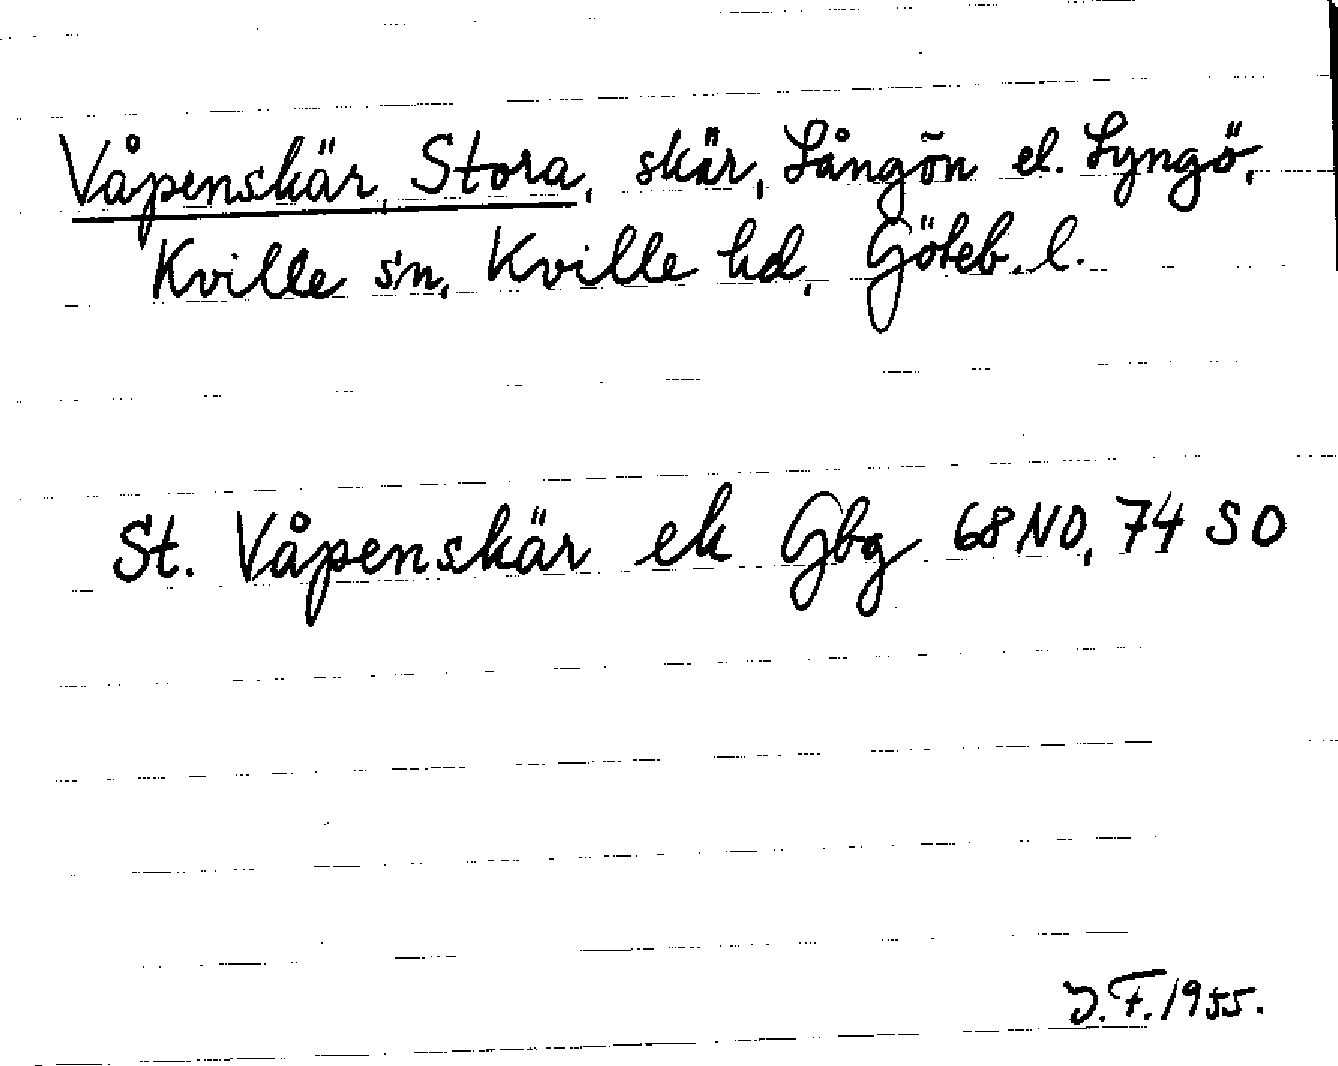 Våpenskär, Stora, skär, Långön el. Lyngö,
Kville sn, Kville hd, Göteb. l.
St. Våpenskär ek Gbg 68 NO, 74 SO
J. F. 1955.